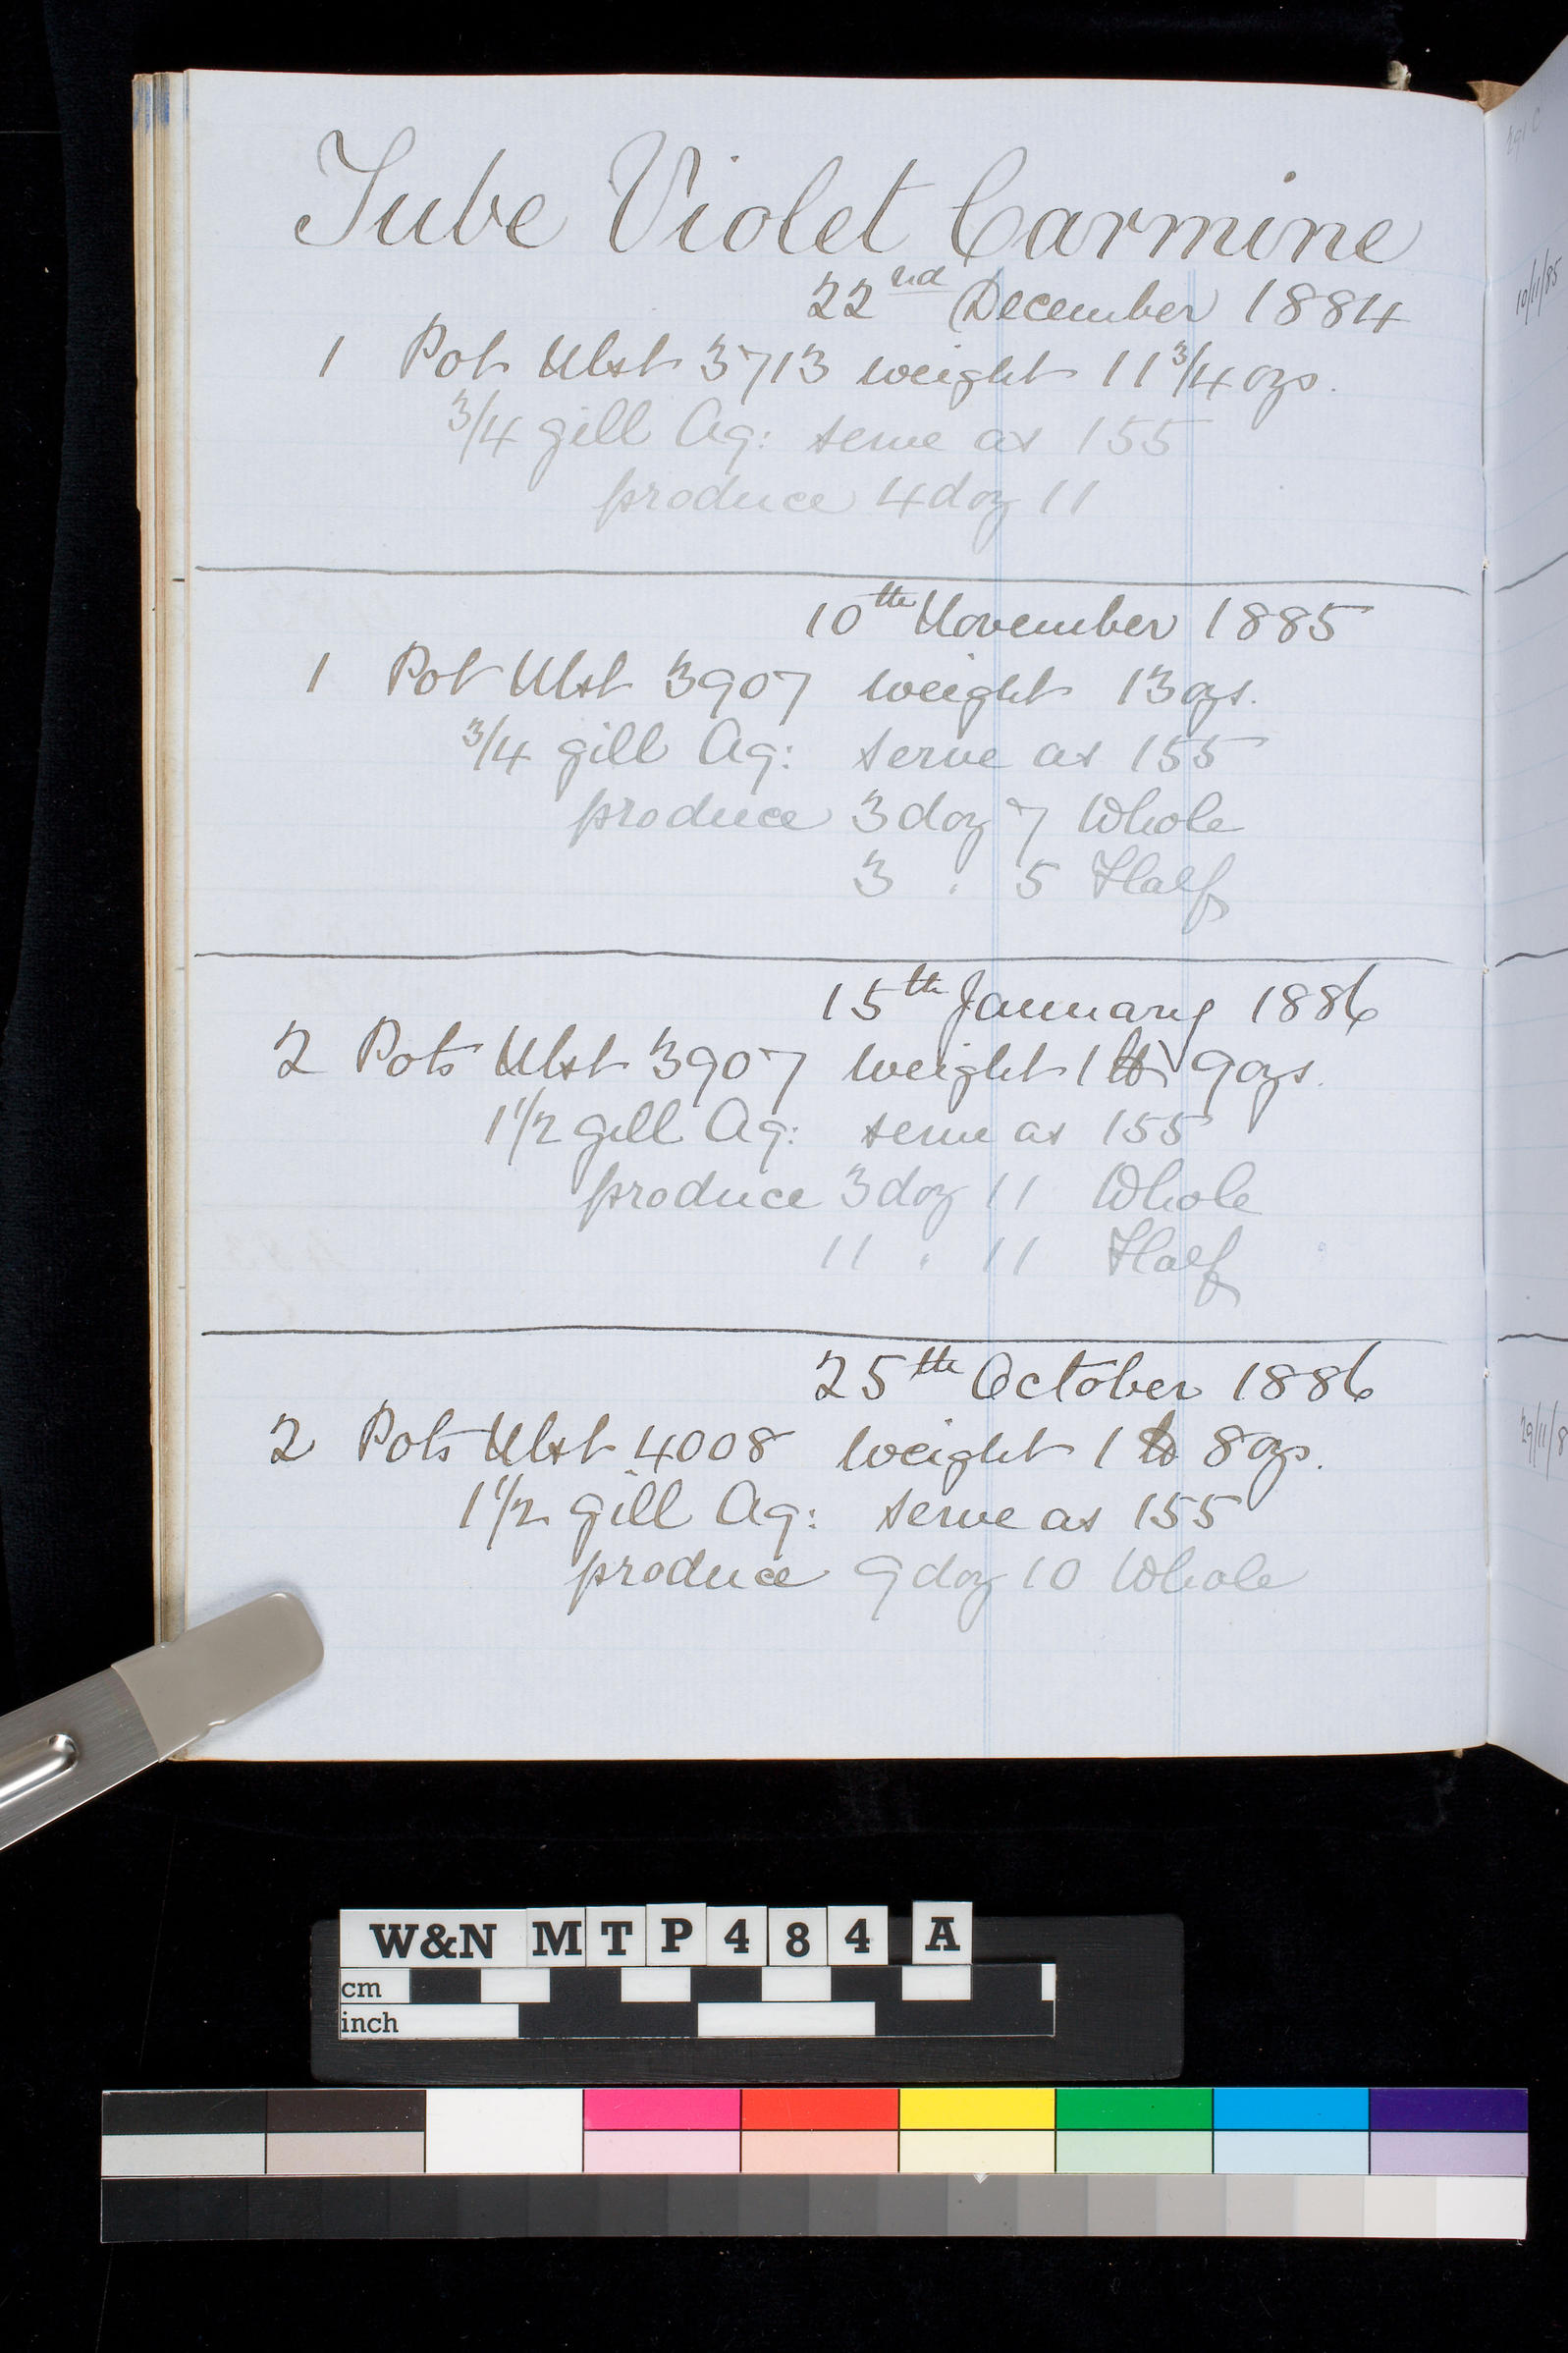 Tube Violet Carmine
22nd December 1884
1 Pot Ulst 3713 weight 11 3/4 ozs.
3/4 gill Aq: serve as 155
produce 4 doz 11
10th November 1885
1 Pot Ulst 3907 weight 13 ozs.
3/4 gill Aq: serve as 155
produce 3 doz 7 Whole
3 . 5 Half
15th January 1886
2 Pots Ulst 3907 weight 1 lb 9 ozs.
1 1/2 gill Aq: serve as 155
produce 3 doz 11 Whole
11 . 11 Half
25th October 1886
2 Pots Ulst 4008 weight 1 lb 8 ozs.
1 1/2 gill Aq: serve as 155
produce 9 doz 10 Whole
10/11/85
W&N MTP484 A
cm
inch